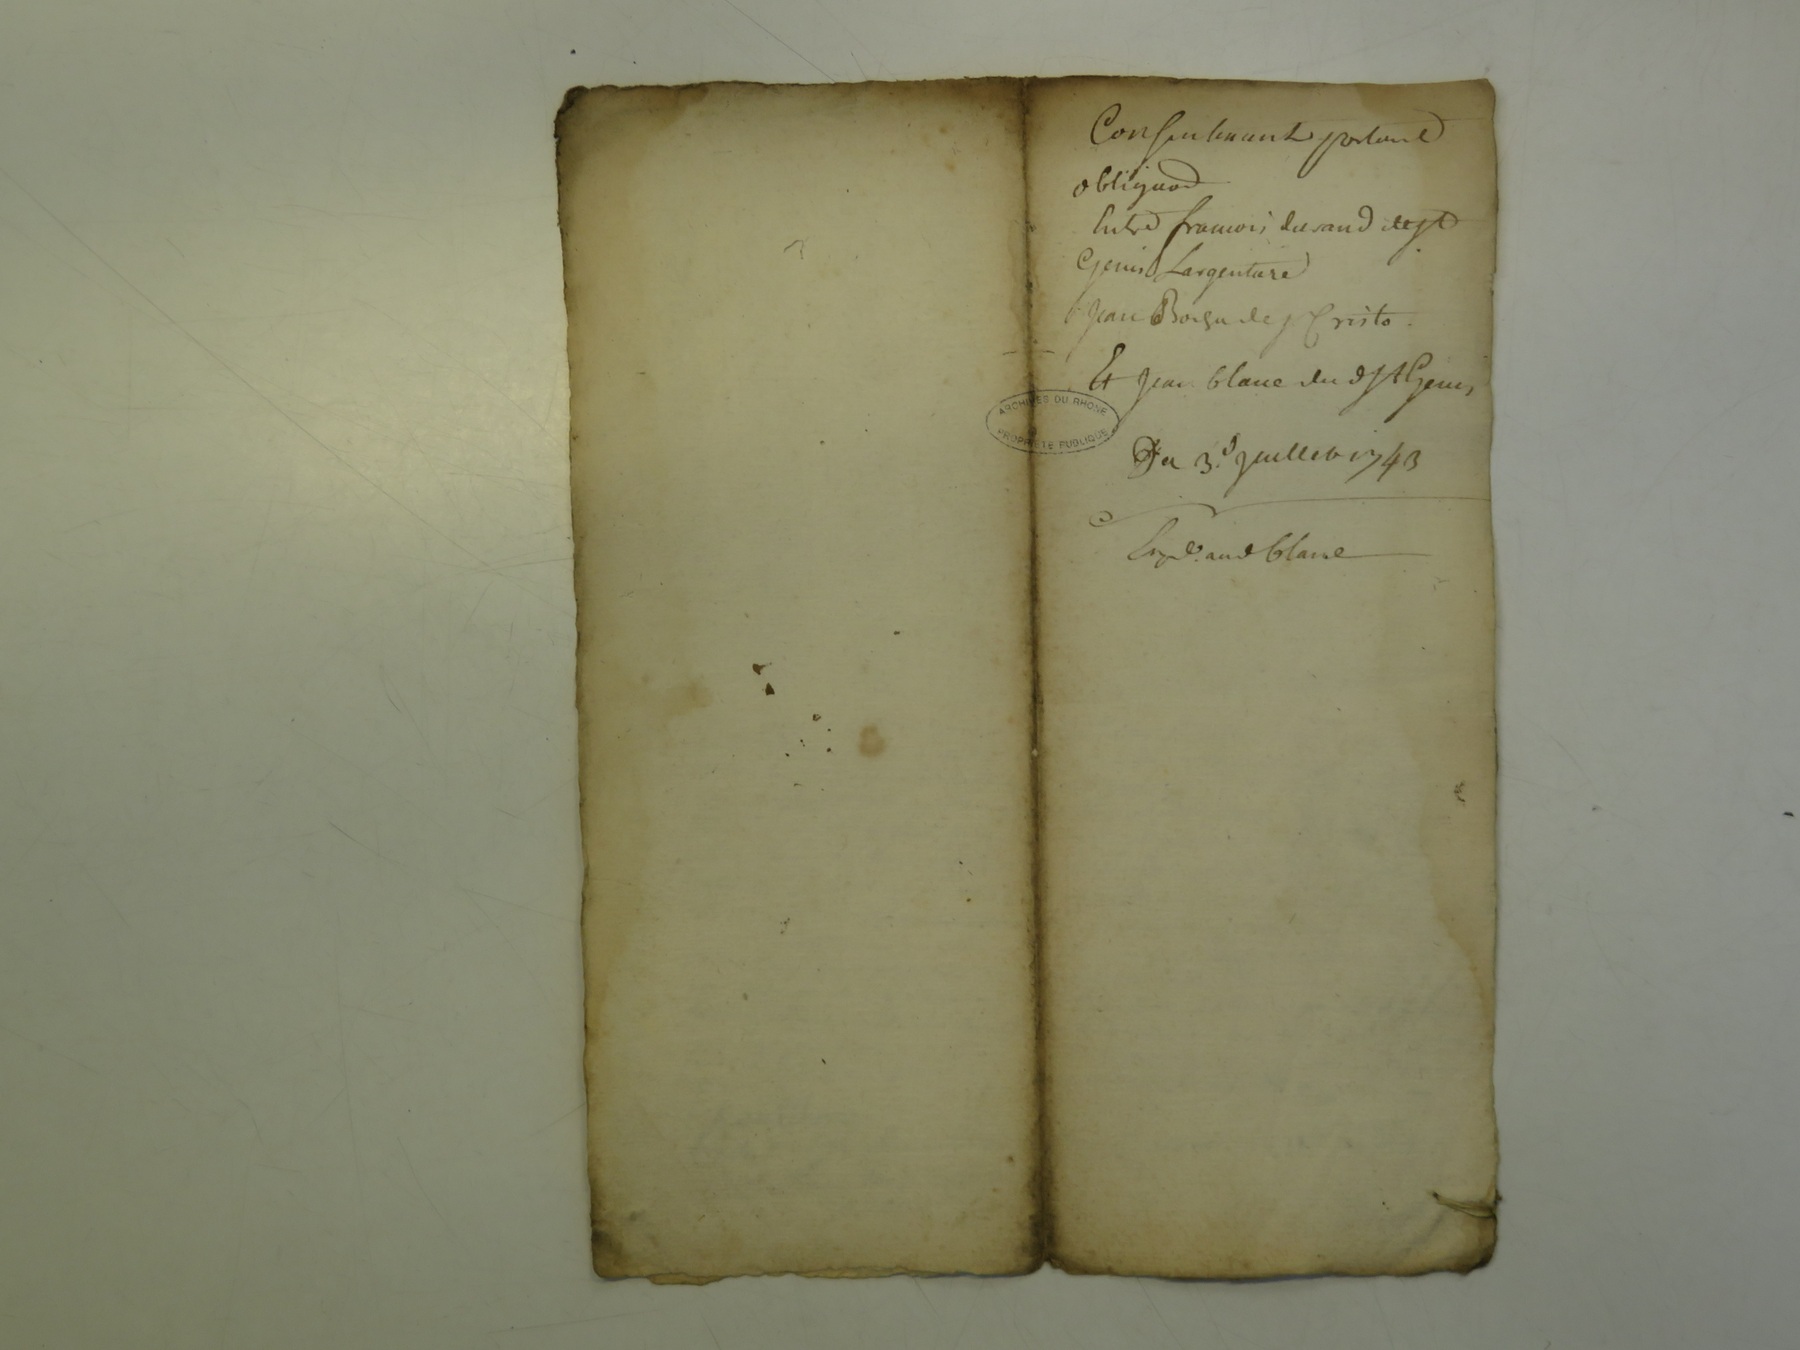 Consentement portant
obligaon
Entre francois durand de st
Genis Largentiere
Jean de st Cristo.
Et Jean blanc du d st Genis
Du 3e Juillet 1743
Exped. aud blanc
ARCHIVES DU RHONE
PROPRIETE PUBLIQUE